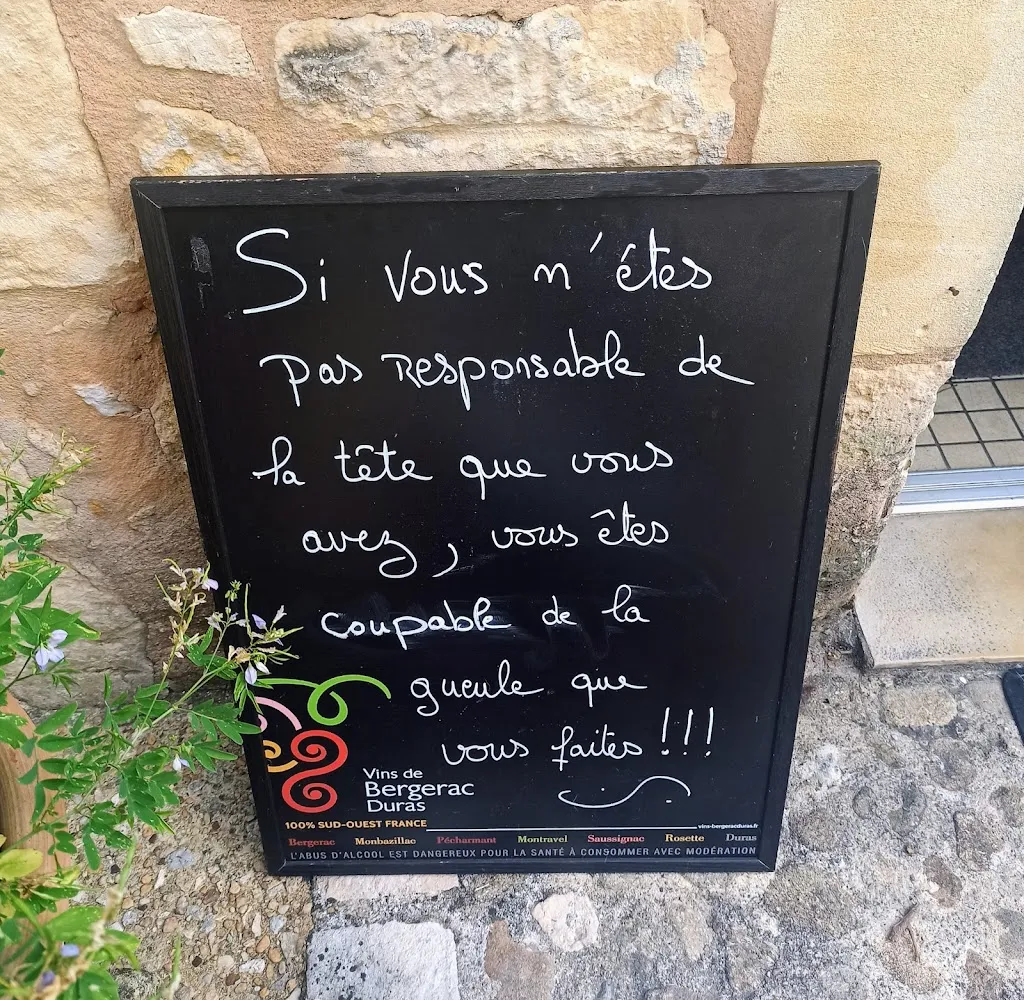 Si vous n'êtes
pas responsable de
la tête que vous
avez, vous êtes
coupable de la
gueule que
vous faites !!!
Vins de
Bergerac
Duras
100% SUD-OUEST FRANCE
vins-bergeracduras.fr
Bergerac Monbazillac Pécharmant Montravel Saussignac Rosette Duras
L'ABUS D'ALCOOL EST DANGEREUX POUR LA SANTÉ À CONSOMMER AVEC MODÉRATION